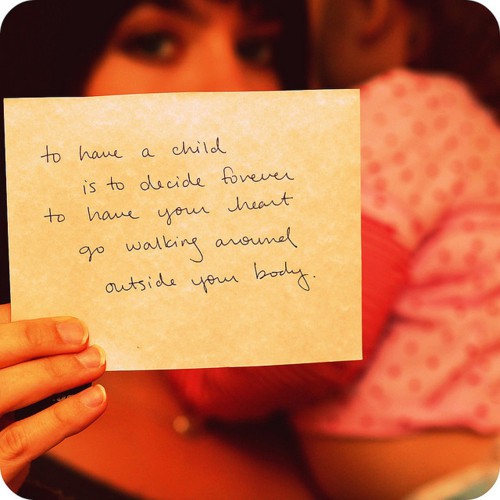 to have a child
is to decide forever
to have your heart
go walking around
outside your body.